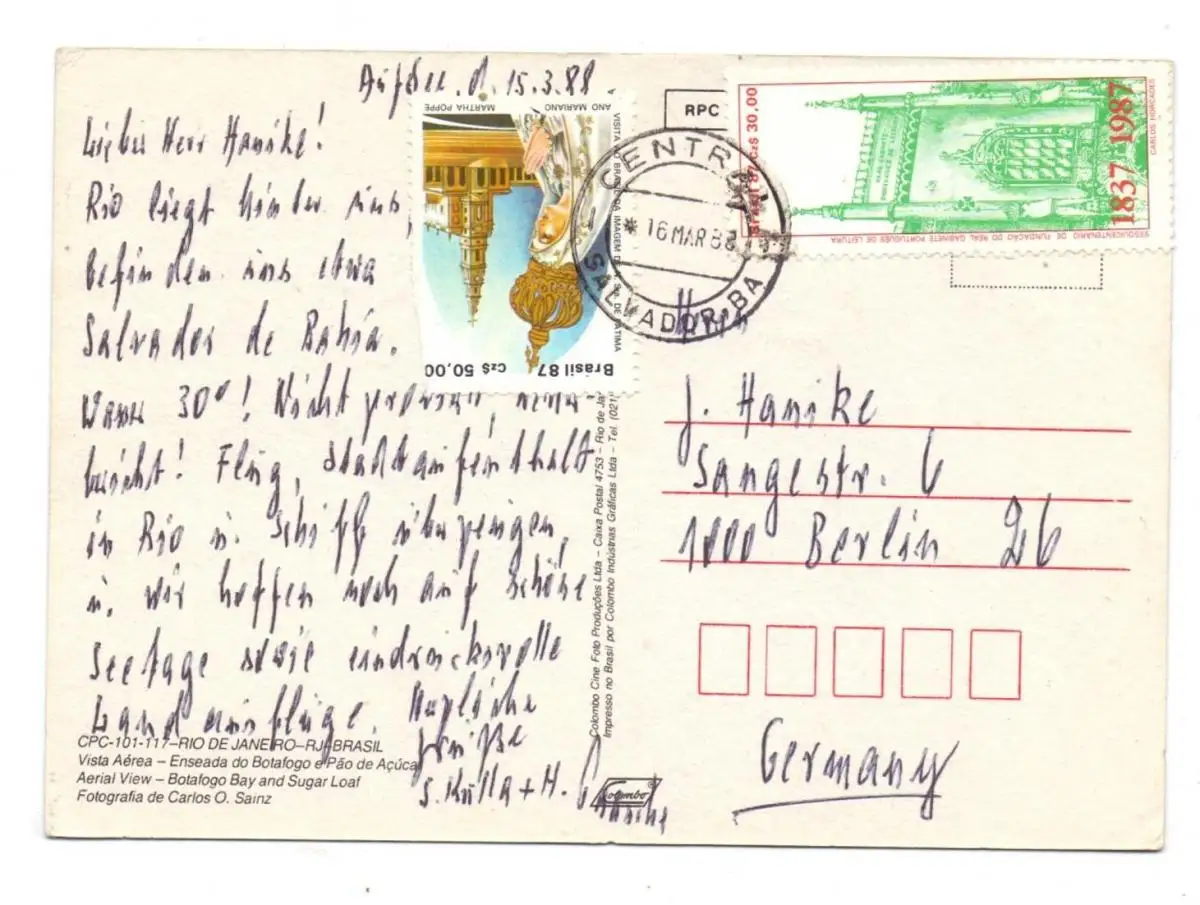 d. 15.3.88.
Lieber Herr Hanike!
Rio liegt hinter uns,
befinden uns etwa
Salvador de Bahia.
30°! Nicht
Flug, Stadtaufenthalt
in Rio u. Schiff
u. wir hoffen noch auf schöne
Seetage sowie eindrucksvolle
Landausflüge. Herzliche
Grüße
S. Kulla + H.
ANO MARIANO MARTHA POPPE
VISITA AO BRASIL DA IMAGEM DE N. Sra. DE FÁTIMA
Brasil 87 Cz$ 50,00
RPC
CENTRAL
* 16 MAR 88
SALVADOR-BA
Brasil 87 Cz$ 30,00
1837 1987
CARLOS HORCADES
SESQUICENTENÁRIO DE FUNDAÇÃO DO REAL GABINETE PORTUGUÊS DE LEITURA
Herrn
J. Hanike
Sangestr. 6
1000 Berlin 26
Germany
Colombo Cine Foto Produções Ltda – Caixa Postal 4753 – Rio de Ja
Impresso no Brasil por Colombo Indústrias Gráficas Ltda – Tel. (021)
CPC-101-117–RIO DE JANEIRO–RJ-BRASIL
Vista Aérea – Enseada do Botafogo e Pão de Açúca
Aerial View – Botafogo Bay and Sugar Loaf
Fotografia de Carlos O. Sainz
Colombo